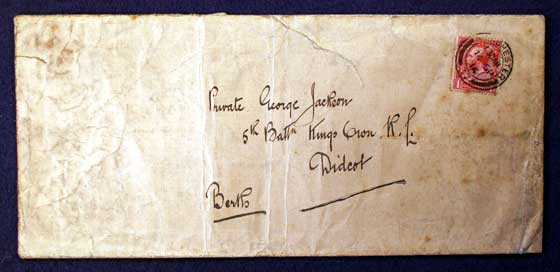 Private George Jackson
5th Battn Kings Own R. L.
Didcot
Berks